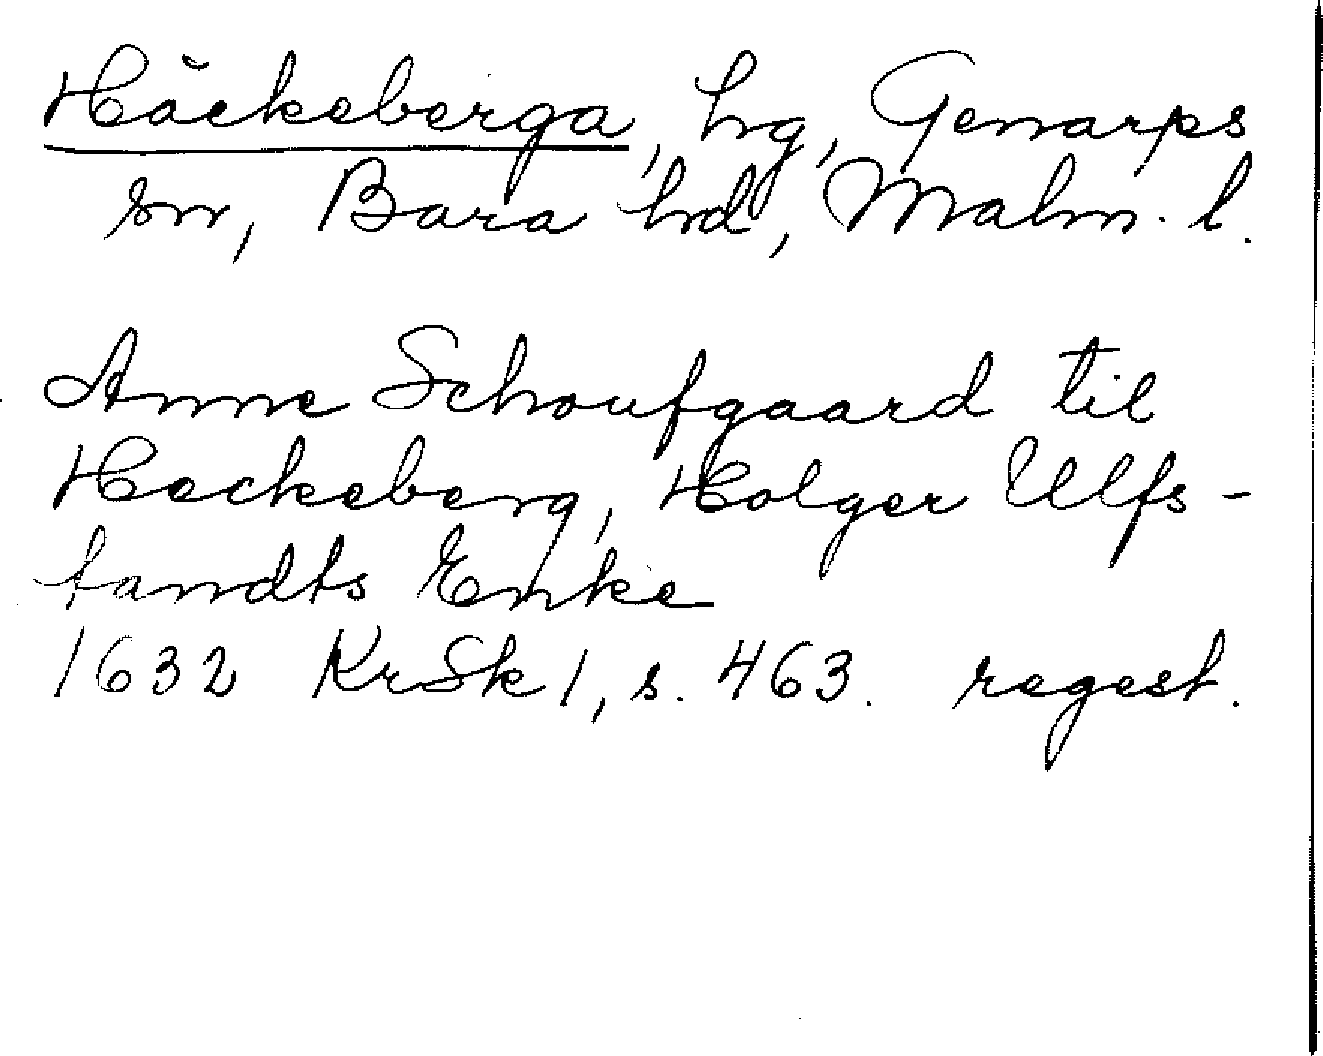 Häckeberga, hrg, Genarps
sn, Bara hd, Malm. l.
Anne Schoufgaard til
Heckeberg, Holger Ulfs-
tandts Enke
1632 KrSk 1, s. 463. regest.